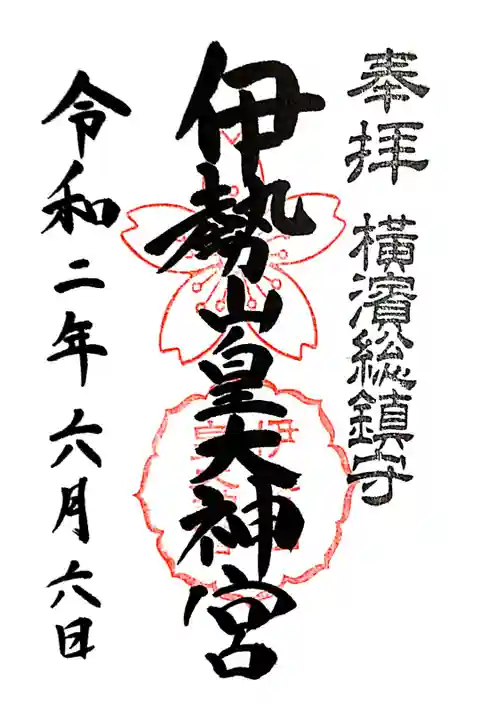 奉拝 横濱総鎮守
伊勢山皇大神宮
令和二年六月六日